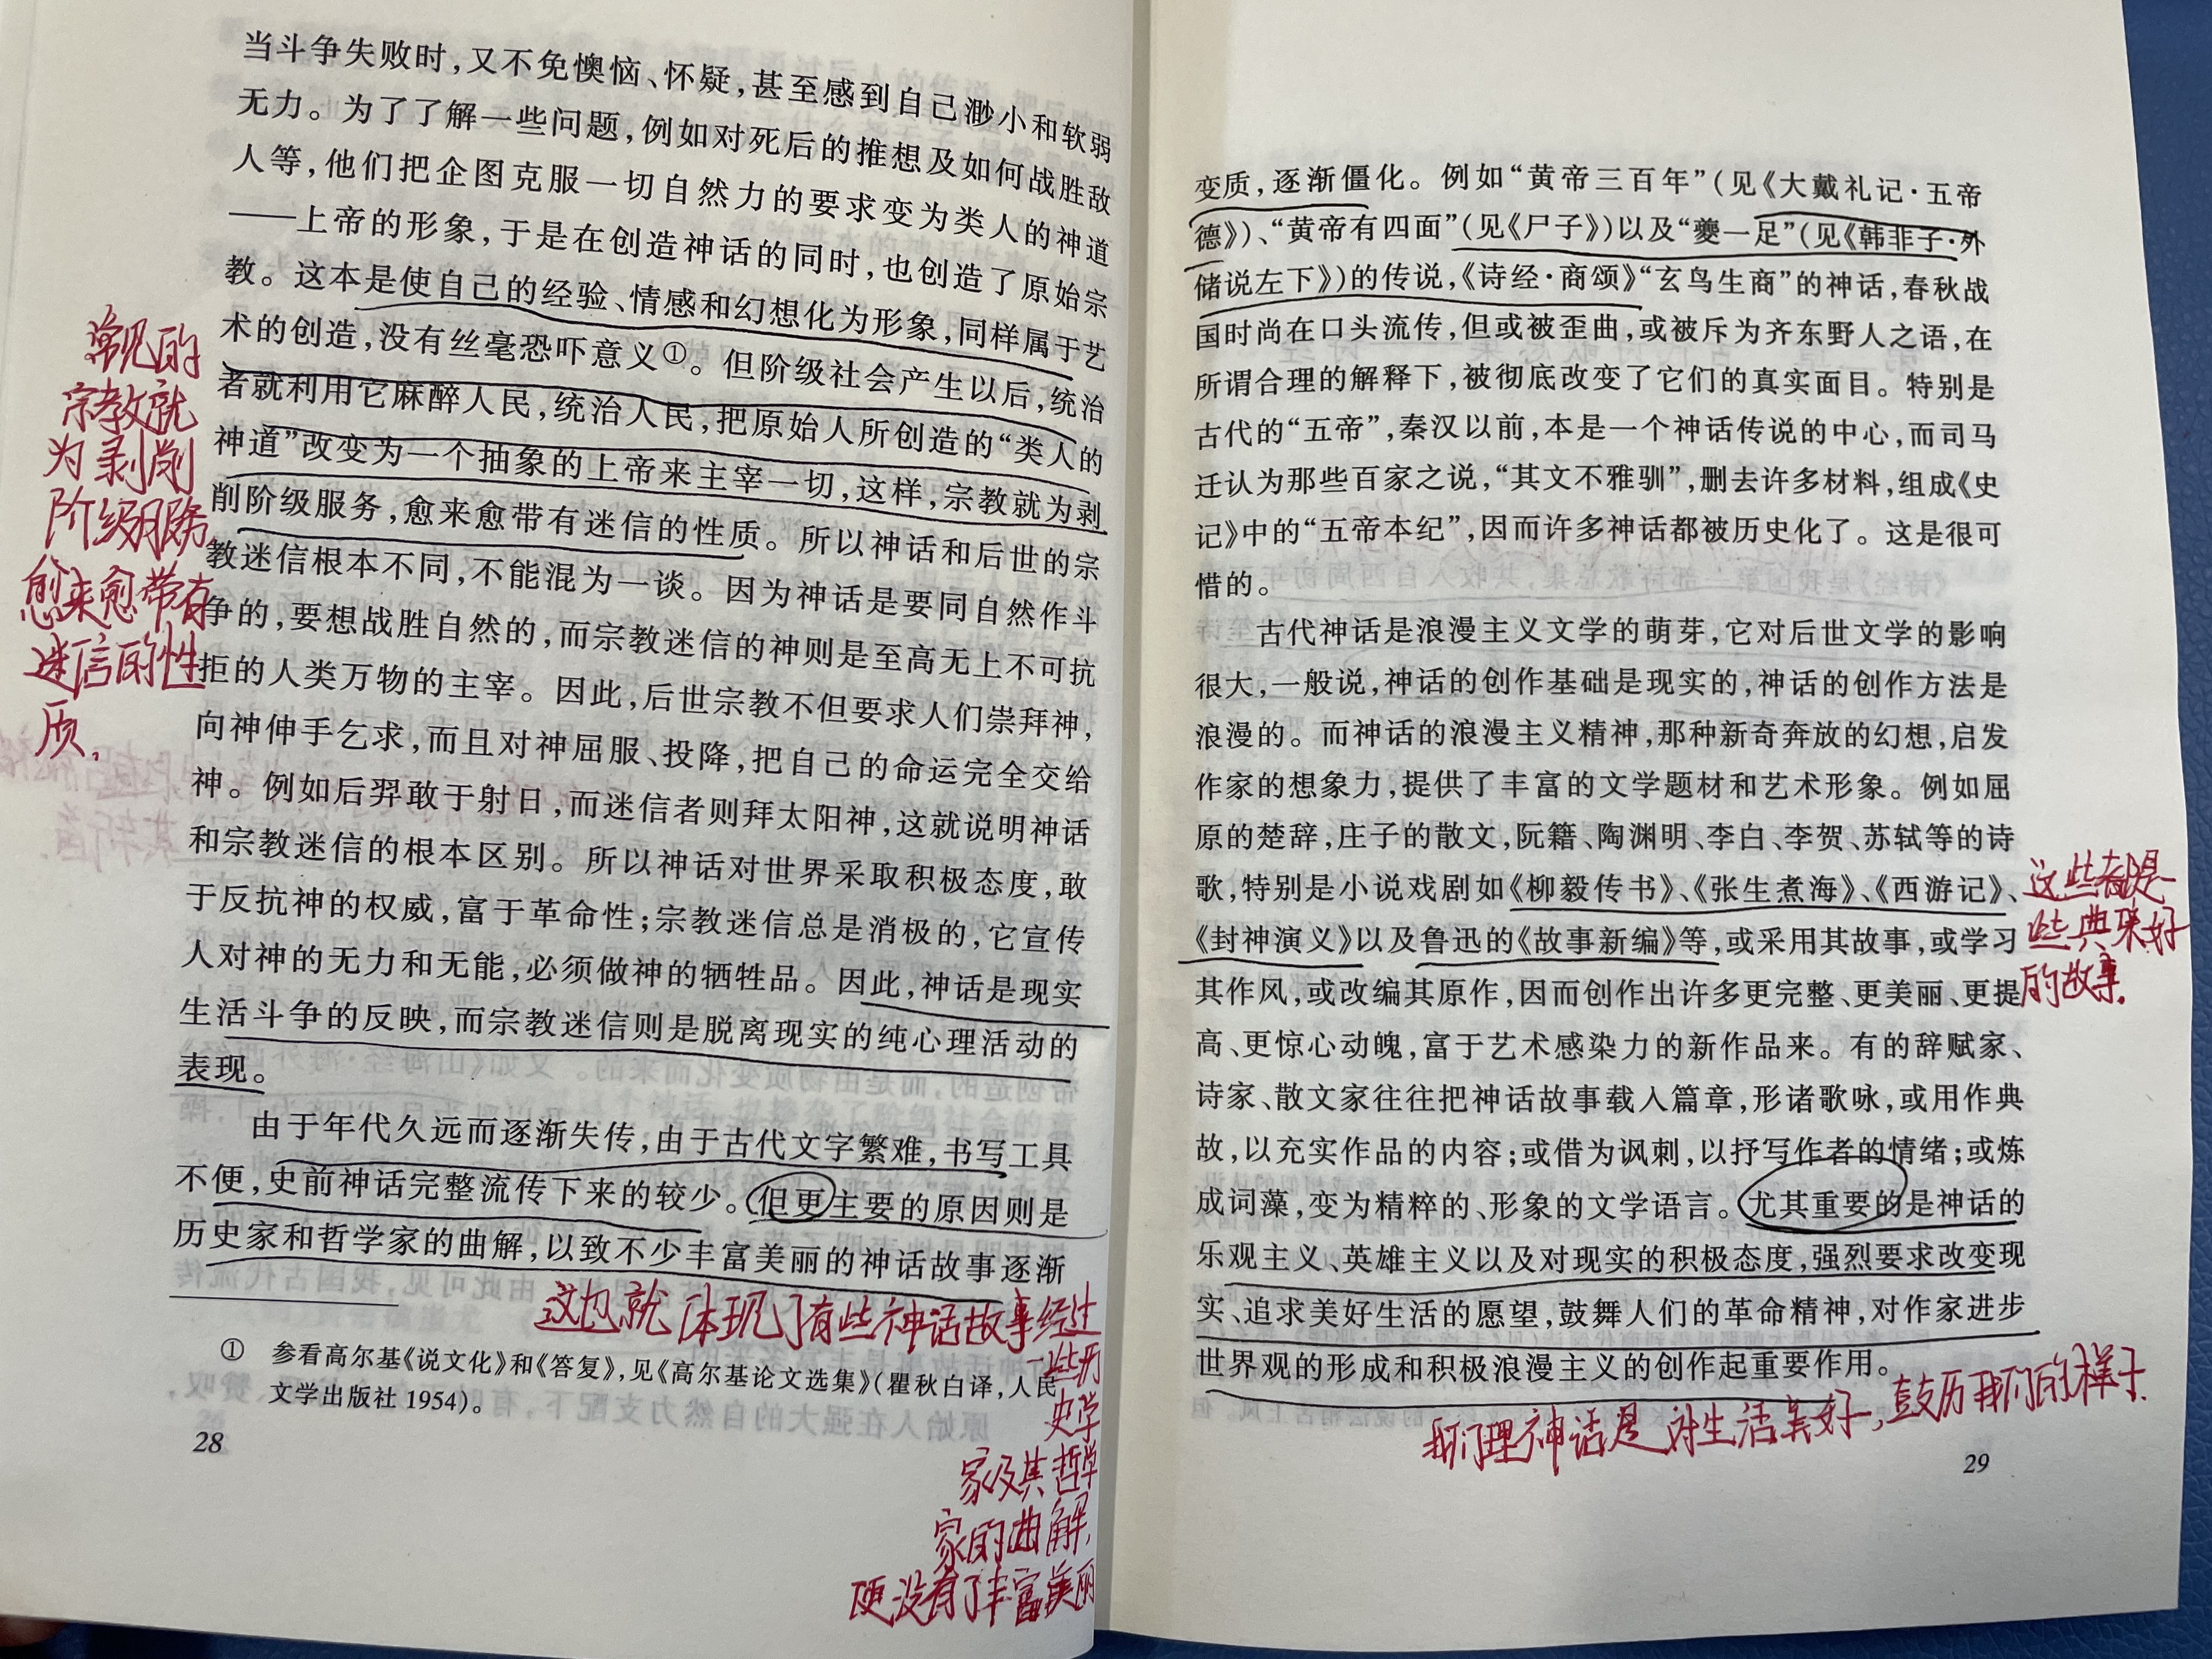 当斗争失败时，又不免懊恼、怀疑，甚至感到自己渺小和软弱
无力。为了了解一些问题，例如对死后的推想及如何战胜敌
人等，他们把企图克服一切自然力的要求变为类人的神道
——上帝的形象，于是在创造神话的同时，也创造了原始宗
教。这本是使自己的经验、情感和幻想化为形象，同样属于艺
术的创造，没有丝毫恐吓意义①。但阶级社会产生以后，统治
者就利用它麻醉人民，统治人民，把原始人所创造的“类人的
神道”改变为一个抽象的上帝来主宰一切，这样，宗教就为剥
削阶级服务，愈来愈带有迷信的性质。所以神话和后世的宗
教迷信根本不同，不能混为一谈。因为神话是要同自然作斗
争的，要想战胜自然的，而宗教迷信的神则是至高无上不可抗
拒的人类万物的主宰。因此，后世宗教不但要求人们崇拜神，
向神伸手乞求，而且对神屈服、投降，把自己的命运完全交给
神。例如后羿敢于射日，而迷信者则拜太阳神，这就说明神话
和宗教迷信的根本区别。所以神话对世界采取积极态度，敢
于反抗神的权威，富于革命性；宗教迷信总是消极的，它宣传
人对神的无力和无能，必须做神的牺牲品。因此，神话是现实
生活斗争的反映，而宗教迷信则是脱离现实的纯心理活动的
表现。
由于年代久远而逐渐失传，由于古代文字繁难，书写工具
不便，史前神话完整流传下来的较少。但更主要的原因则是
历史家和哲学家的曲解，以致不少丰富美丽的神话故事逐渐
① 参看高尔基《说文化》和《答复》，见《高尔基论文选集》（瞿秋白译，人民
文学出版社1954）。
28
常见的
宗教就
为剥削
阶级服务，
愈来愈带有
迷信的性
质，
这也就体现了有些神话故事经过
一些历
史学
家及其哲学
家的曲解，
更没有了丰富美丽
变质，逐渐僵化。例如“黄帝三百年”（见《大戴礼记·五帝
德》）、“黄帝有四面”（见《尸子》）以及“夔一足”（见《韩非子·外
储说左下》）的传说，《诗经·商颂》“玄鸟生商”的神话，春秋战
国时尚在口头流传，但或被歪曲，或被斥为齐东野人之语，在
所谓合理的解释下，被彻底改变了它们的真实面目。特别是
古代的“五帝”，秦汉以前，本是一个神话传说的中心，而司马
迁认为那些百家之说，“其文不雅驯”，删去许多材料，组成《史
记》中的“五帝本纪”，因而许多神话都被历史化了。这是很可
惜的。
古代神话是浪漫主义文学的萌芽，它对后世文学的影响
很大，一般说，神话的创作基础是现实的，神话的创作方法是
浪漫的。而神话的浪漫主义精神，那种新奇奔放的幻想，启发
作家的想象力，提供了丰富的文学题材和艺术形象。例如屈
原的楚辞，庄子的散文，阮籍、陶渊明、李白、李贺、苏轼等的诗
歌，特别是小说戏剧如《柳毅传书》、《张生煮海》、《西游记》、
《封神演义》以及鲁迅的《故事新编》等，或采用其故事，或学习
其作风，或改编其原作，因而创作出许多更完整、更美丽、更提
高、更惊心动魄，富于艺术感染力的新作品来。有的辞赋家、
诗家、散文家往往把神话故事载入篇章，形诸歌咏，或用作典
故，以充实作品的内容；或借为讽刺，以抒写作者的情绪；或炼
成词藻，变为精粹的、形象的文学语言。尤其重要的是神话的
乐观主义、英雄主义以及对现实的积极态度，强烈要求改变现
实、追求美好生活的愿望，鼓舞人们的革命精神，对作家进步
世界观的形成和积极浪漫主义的创作起重要作用。
这些都是
些典来好
的故事。
我们理神话是对生活美好，鼓历我们的样子．
29